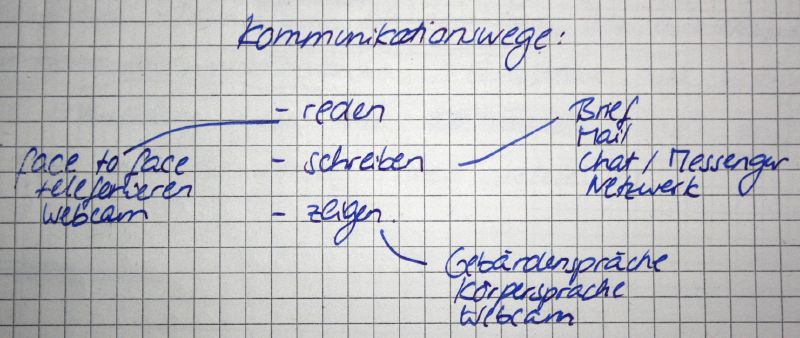 Kommunikationswege:
- reden
face to face
telefonieren
Webcam
- schreiben
Brief
Mail
Chat / Messenger
Netzwerk
- zeigen
Gebärdensprache
Körpersprache
Webcam